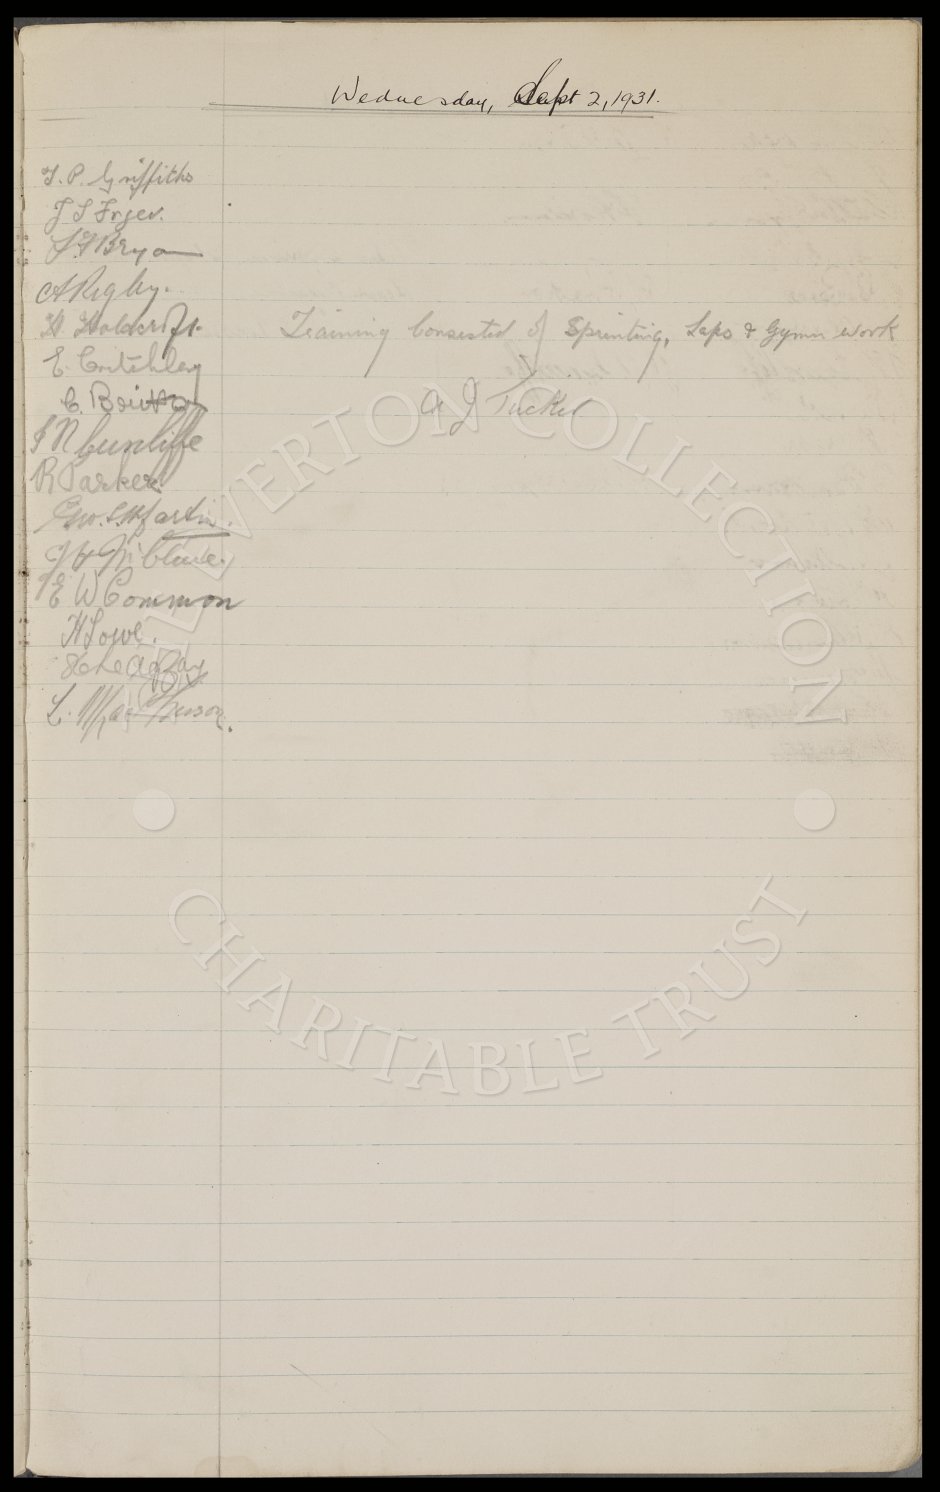 Wednesday, Sept 2, 1931.
T. P. Griffiths
J S Fryer.
A Rigby.
H Holdcroft. Training Consisted of Sprinting, Laps & Gymn work
E. Critchley
C. Britton A J Tucket
J N Cunliffe
R Parker
Geo. S. Martin.
E W Common
H Lowe.
L. MacPherson.
EVERTON COLLECTION
CHARITABLE TRUST